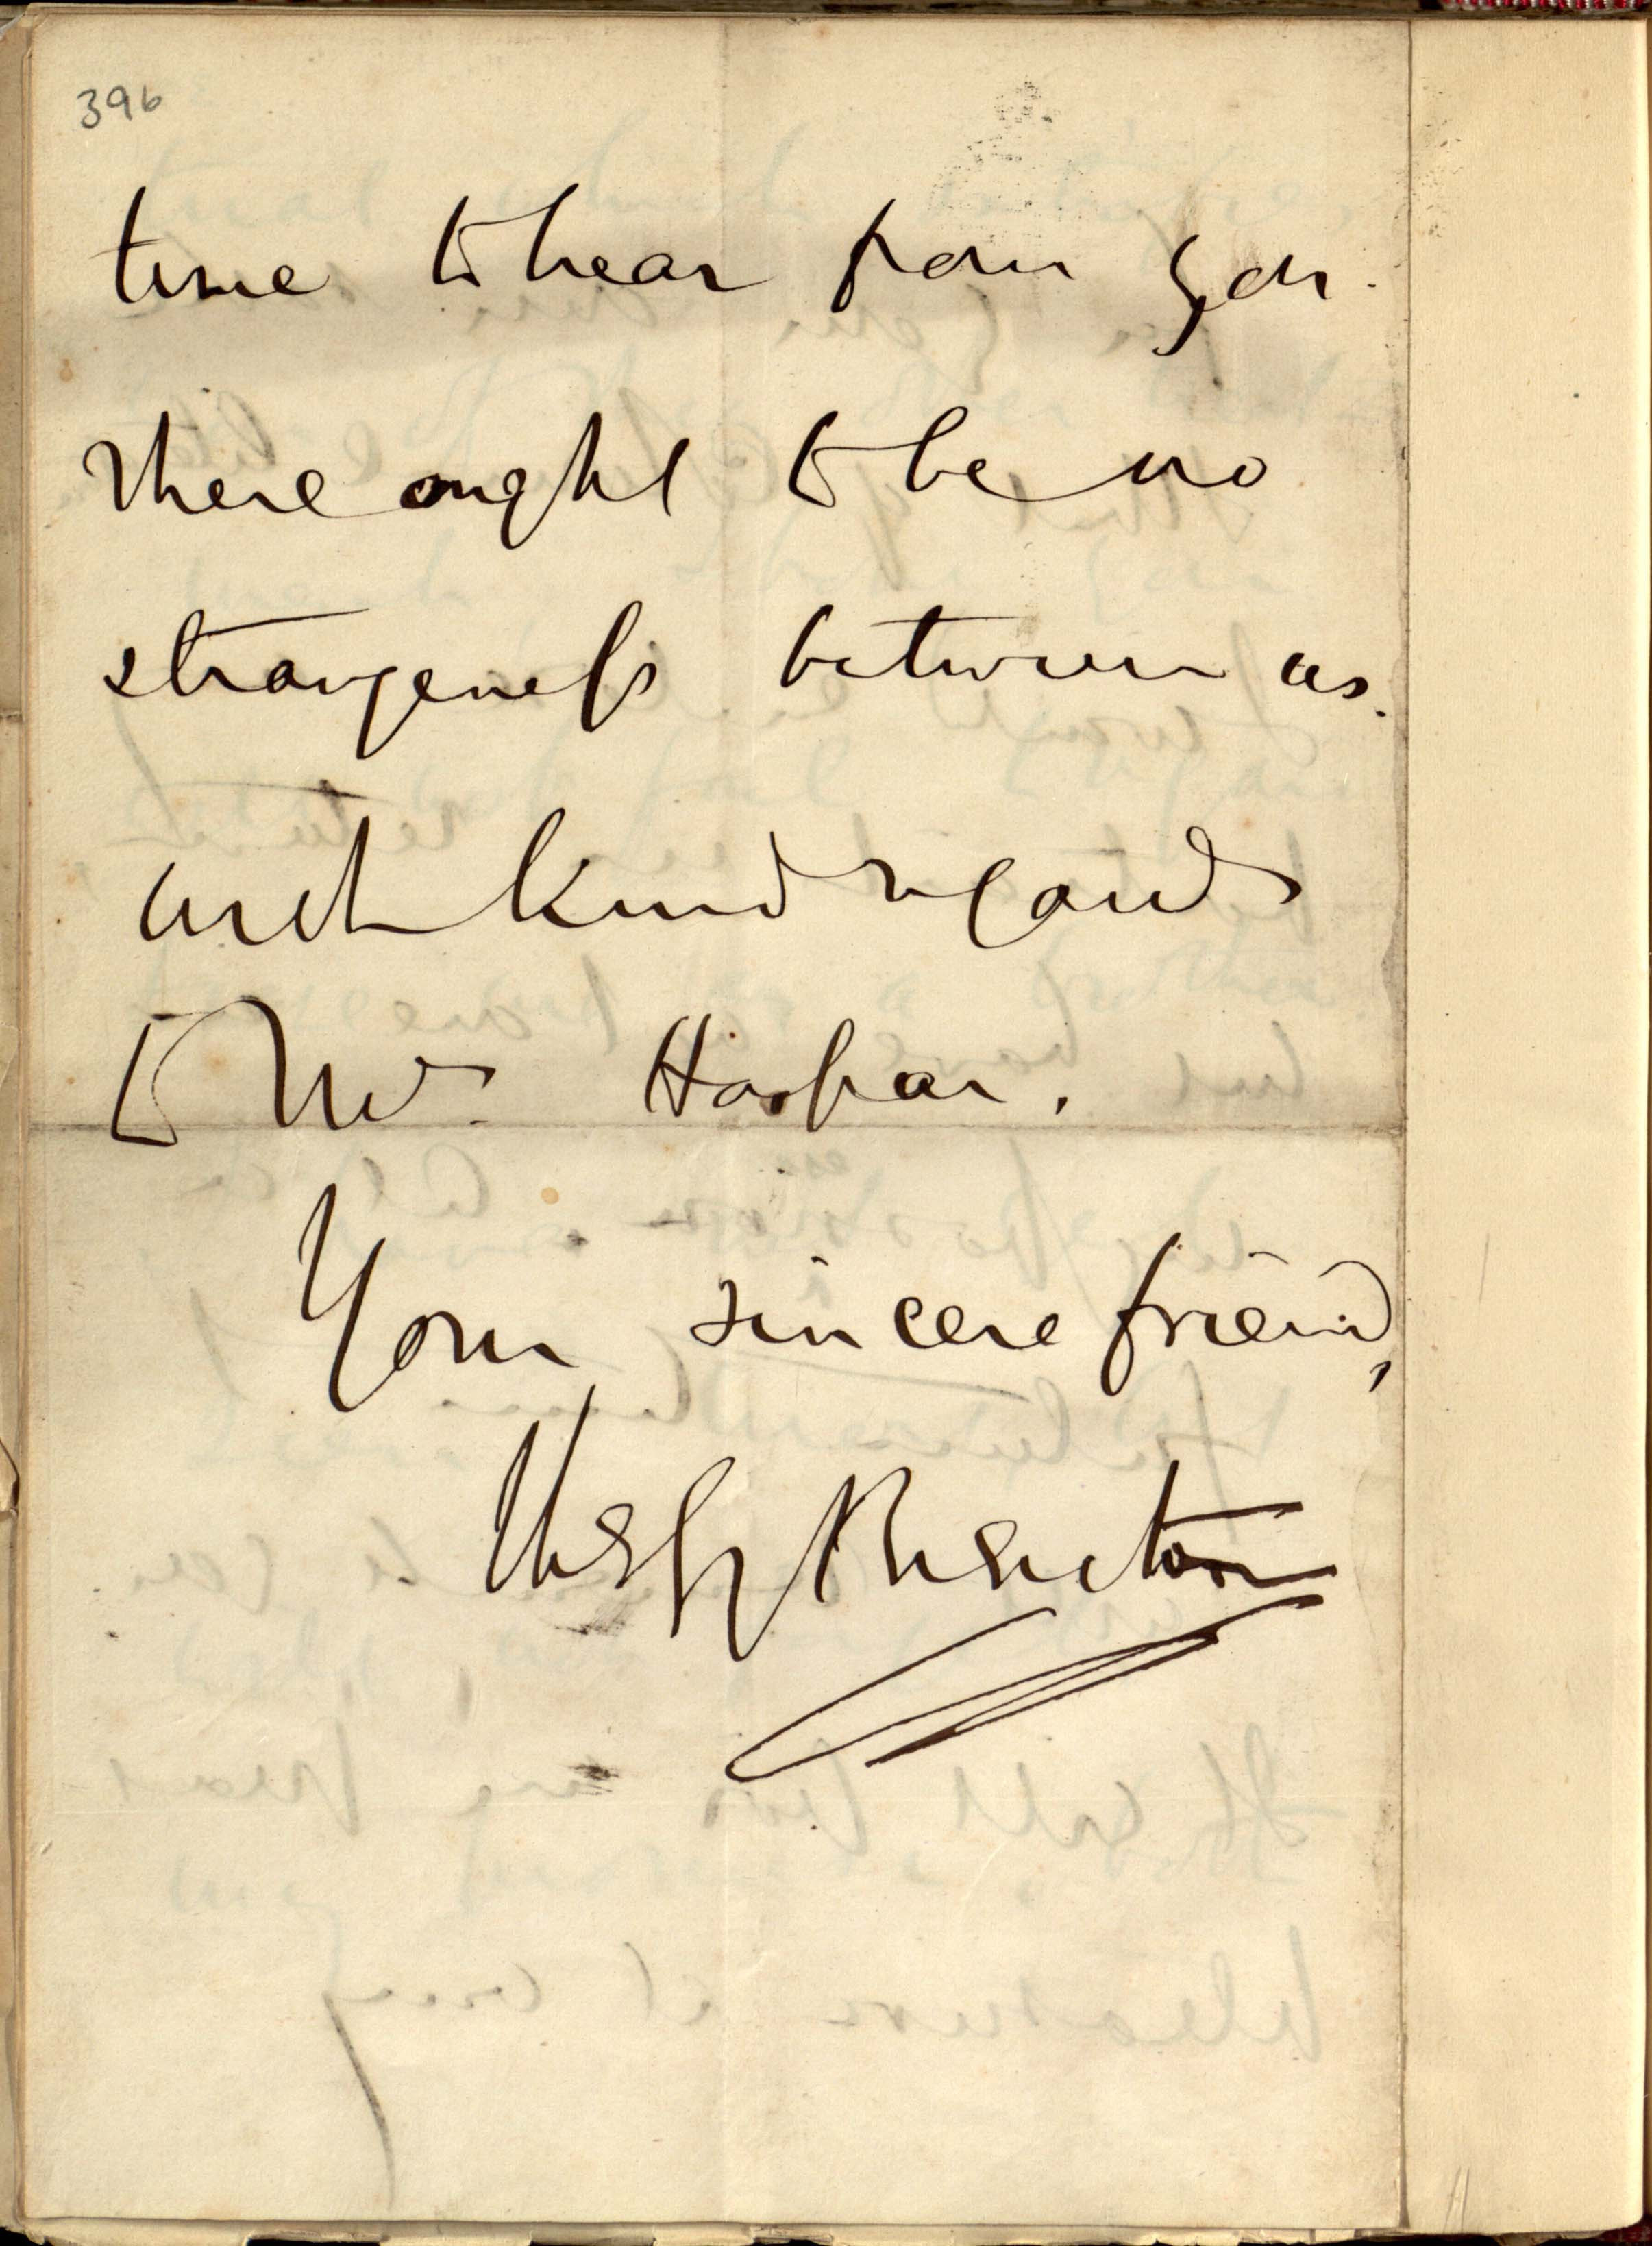 396
time to hear from you.
There ought to be no
strangeness between us.
With kind regards
to Mrs.
Your sincere friend,